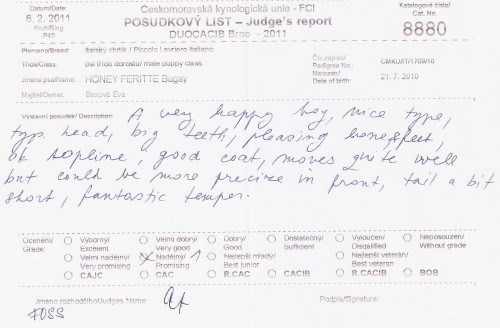 Datum/Date:
6. 2. 2011
Kruh/Ring
P40
Českomoravská kynologická unie - FCI
POSUDKOVÝ LIST – Judge's report
DUOCACIB Brno - 2011
Katalogové číslo/
Cat. No.
8880
Plemeno/Breed: Italský chrtík / Piccolo Levriero Italiano
Třída/Class: psi třída dorostu/ male puppy class
Jméno psa/Name: HONEY FERITTE Bugsy
Majitel/Owner: Baxová Eva
Č.zápisu/
Pedigree No.: CMKU/IT/1709/10
Narozen/
Date of birth: 21.7. 2010
Výstavní posudek/ Description: A very happy boy, nice type,
typ. head, big teeth, pleasing bone&feet,
ok topline, good coat, moves quite well
but could be more precize in front, tail a bit
short, fantastic temper.
Ocenění/
Grade:
Výborný/
Excelent
Velmi dobrý/
Very good
Dobrý/
Good
Dostatečný/
Sufficient
Vyloučen/
Disqalified
Neposouzen/
Without grade
Velmi nadějný/
Very promising
X Nadějný/ 1
Promising
Nejlepší mladý/
Best junior
Nejlepší veterán/
Best veteran
CAJC
CAC
R.CAC
CACIB
R.CACIB
BOB
Jméno rozhodčího/Judges Name:
FOSS
Podpis/Signature: